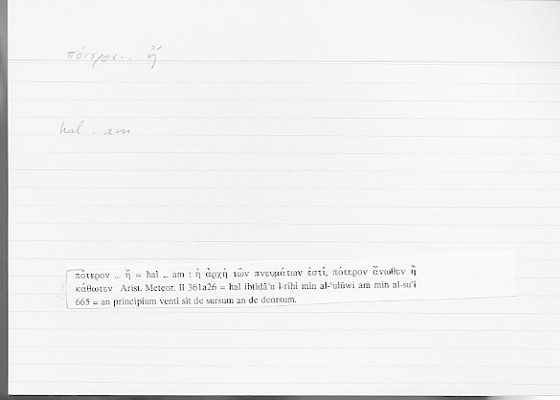 πότερον... ἤ
hal... am
πότερον ... ἤ = hal .. am : ἡ ἀρχὴ τῶν πνευμάτων ἐστί, πότερον ἄνωθεν ἢ
κάθωτεν Arist. Meteor. II 361a26 = hal ibtidā'u l-rīḥi min al-'ulūwi am min al-su'i
665 = an principium venti sit de sursum an de deorsum.